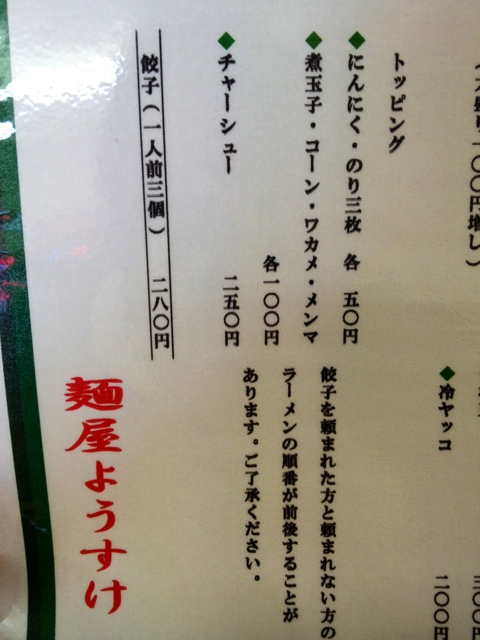 大盛り一〇〇円増し）
トッピング
◆にんにく・のり三枚　各　五〇円
◆煮玉子・コーン・ワカメ・メンマ
各一〇〇円
◆チャーシュー　二五〇円
餃子（一人前三個）　二八〇円
三〇〇円
◆冷ヤッコ　二〇〇円
餃子を頼まれた方と頼まれない方の
ラーメンの順番が前後することが
あります。ご了承ください。
麺屋ようすけ